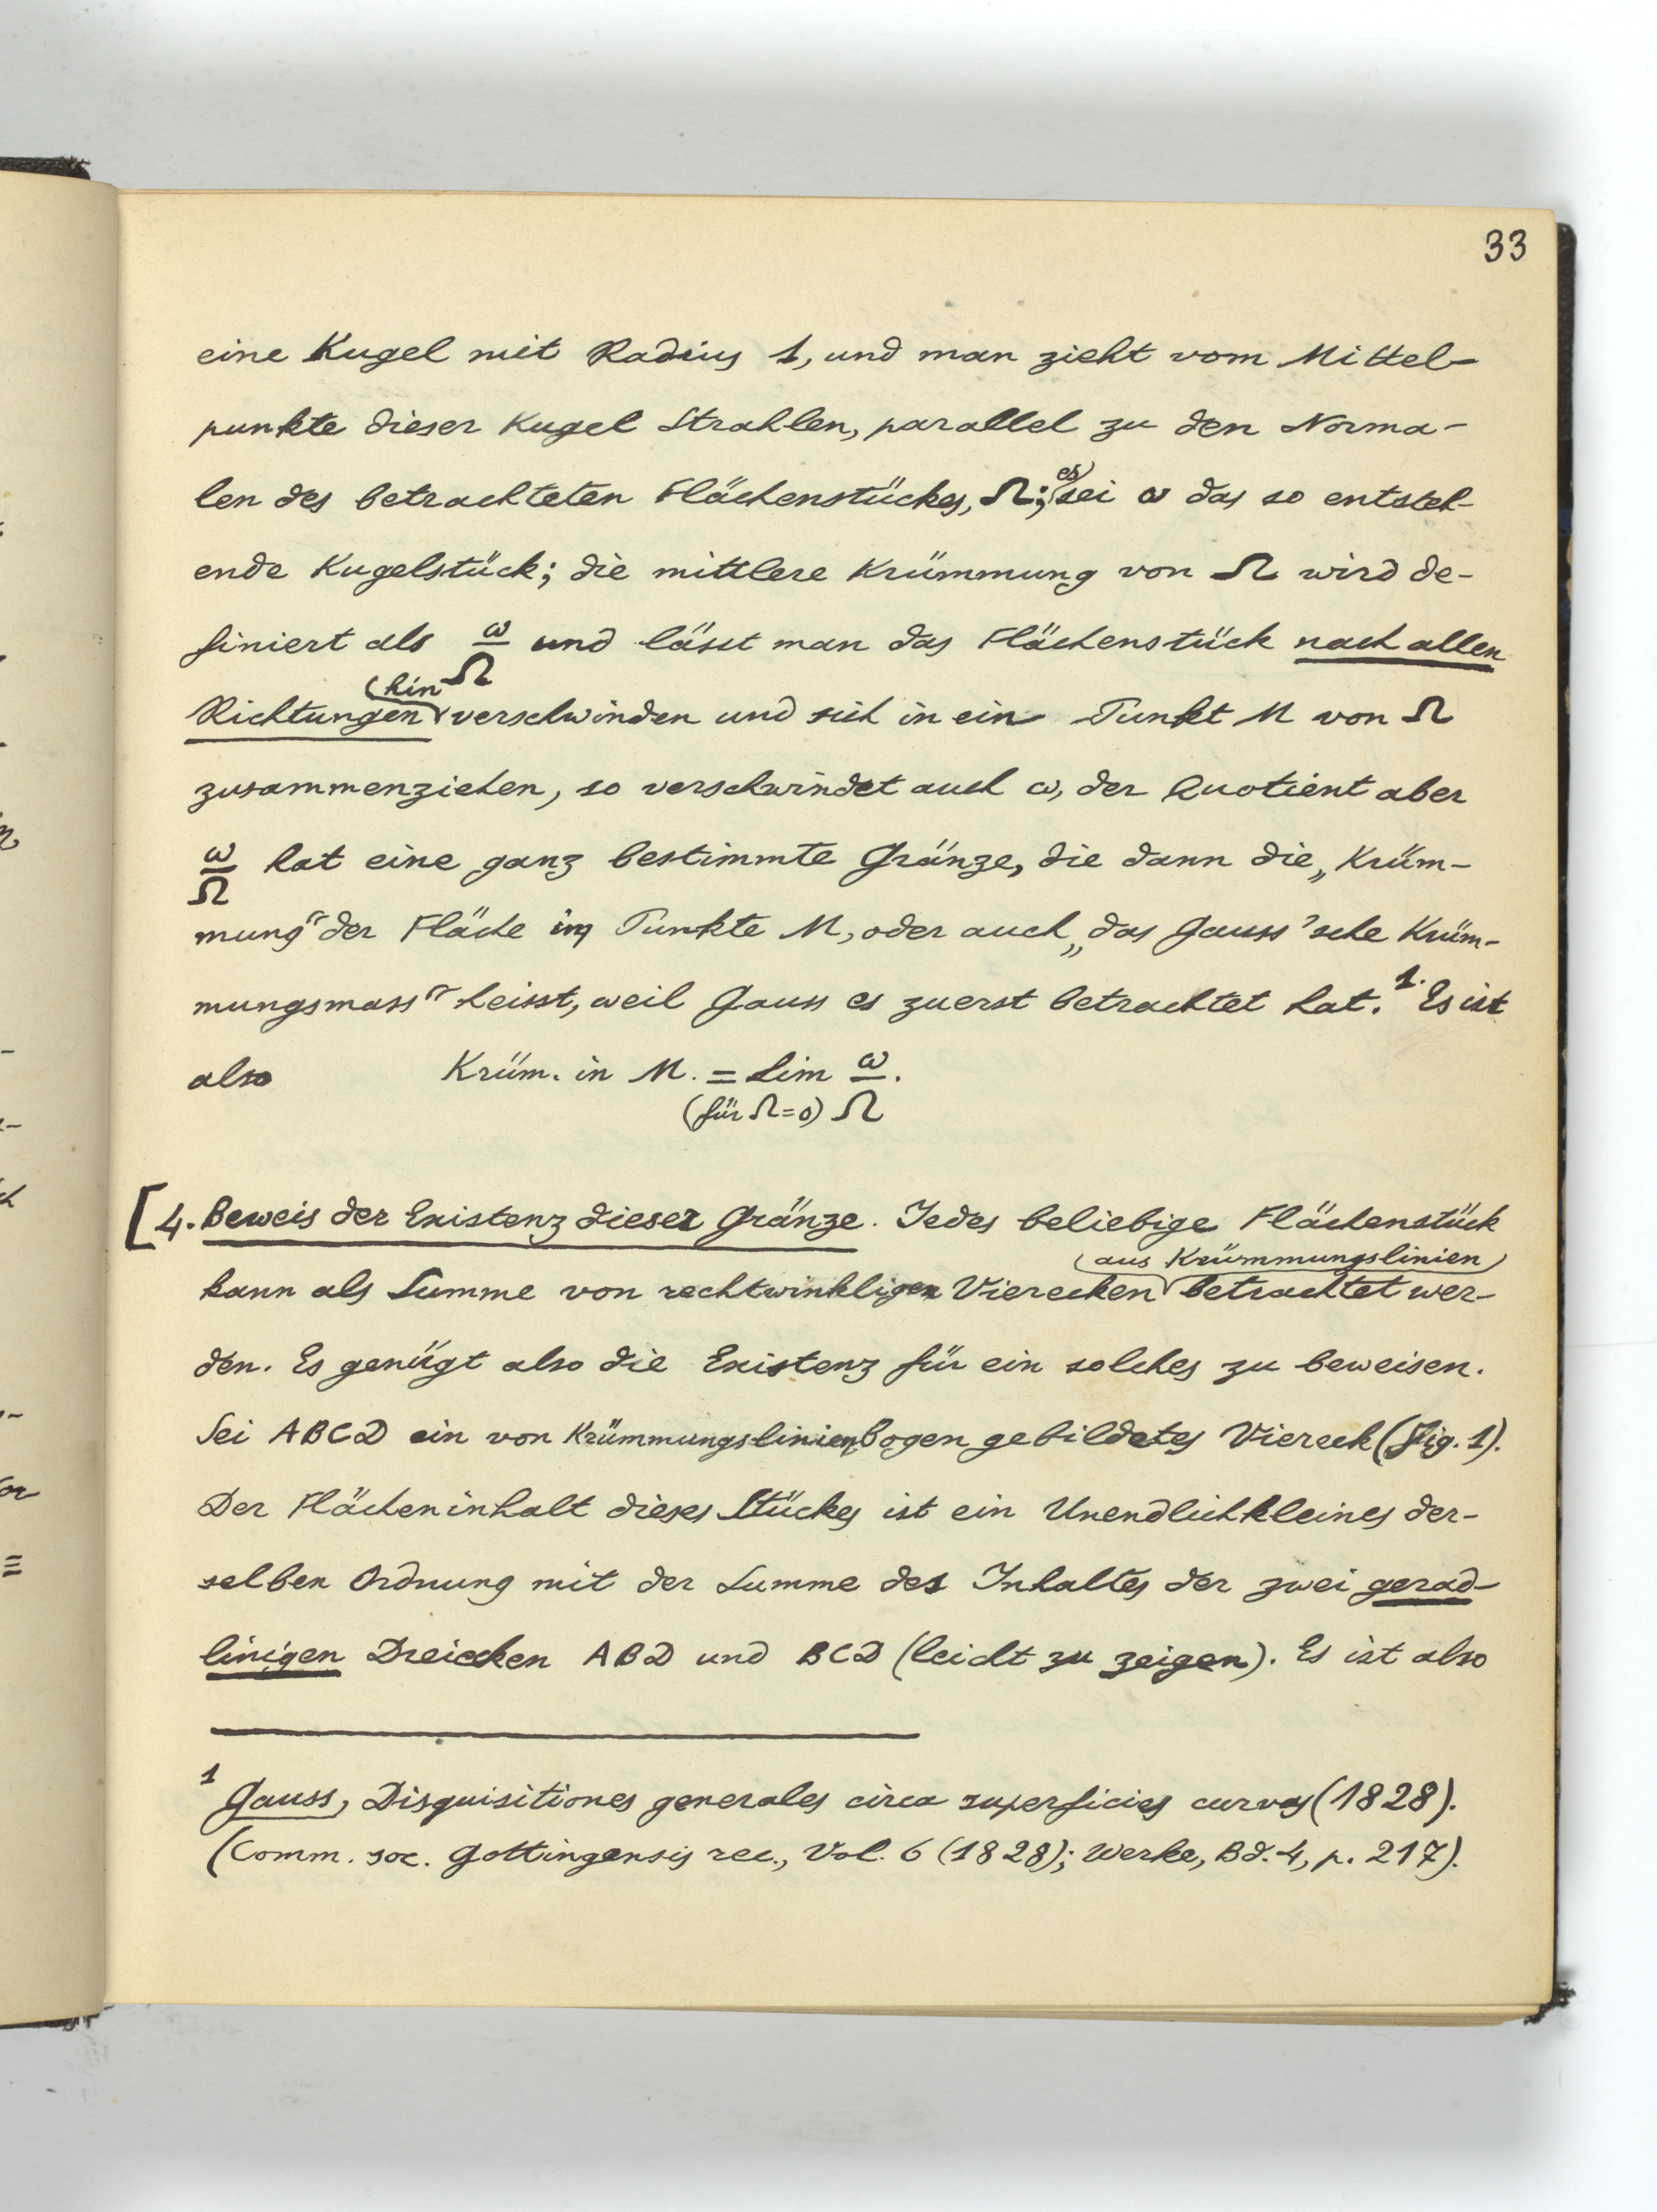 33
eine Kugel mit Radius 1, und man zieht vom Mittel-
punkte dieser Kugel Strahlen, parallel zu den Norma-
len des betrachteten Flächenstückes, Ω; es sei ω das so entsteh-
ende Kugelstück; die mittlere Krümmung von Ω wird de-
finiert als ω/Ω und lässt man das Flächenstück nach allen
Richtungen hin verschwinden und sich in ein Punkt M von Ω
zusammenziehen, so verschwindet auch ω, der Quotient aber
ω/Ω hat eine ganz bestimmte Gränze, die dann die „Krüm-
mung“ der Fläche im Punkte M, oder auch „das Gauss'sche Krüm-
mungsmass“ heisst, weil Gauss es zuerst betrachtet hat.1. Es ist
also Krüm. in M. = Lim ω/Ω.
(für Ω=0)
[4. Beweis der Existenz dieser Gränze. Jedes beliebige Flächenstück
kann als Summe von rechtwinkligen Vierecken (aus Krümmungslinien) betrachtet wer-
den. Es genügt also die Existenz für ein solches zu beweisen.
Sei ABCD ein von Krümmungslinienbogen gebildetes Viereck (Fig. 1).
Der Flächeninhalt dieses Stückes ist ein Unendlichkleines der-
selben Ordnung mit der Summe des Inhaltes der zwei gerad-
linigen Dreiecken ABD und BCD (leicht zu zeigen). Es ist also
1 Gauss, Disquisitiones generales circa superficies curvas (1828).
(Comm. soc. Gottingensis rec., Vol. 6 (1828); Werke, Bd. 4, p. 217).